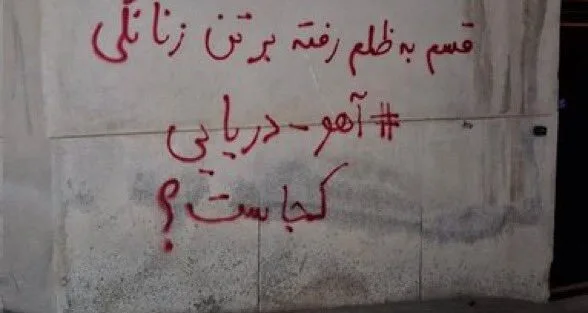 قسم به ظلم رفته بر تن زنانگی
#آهو-دریایی
کجاست؟